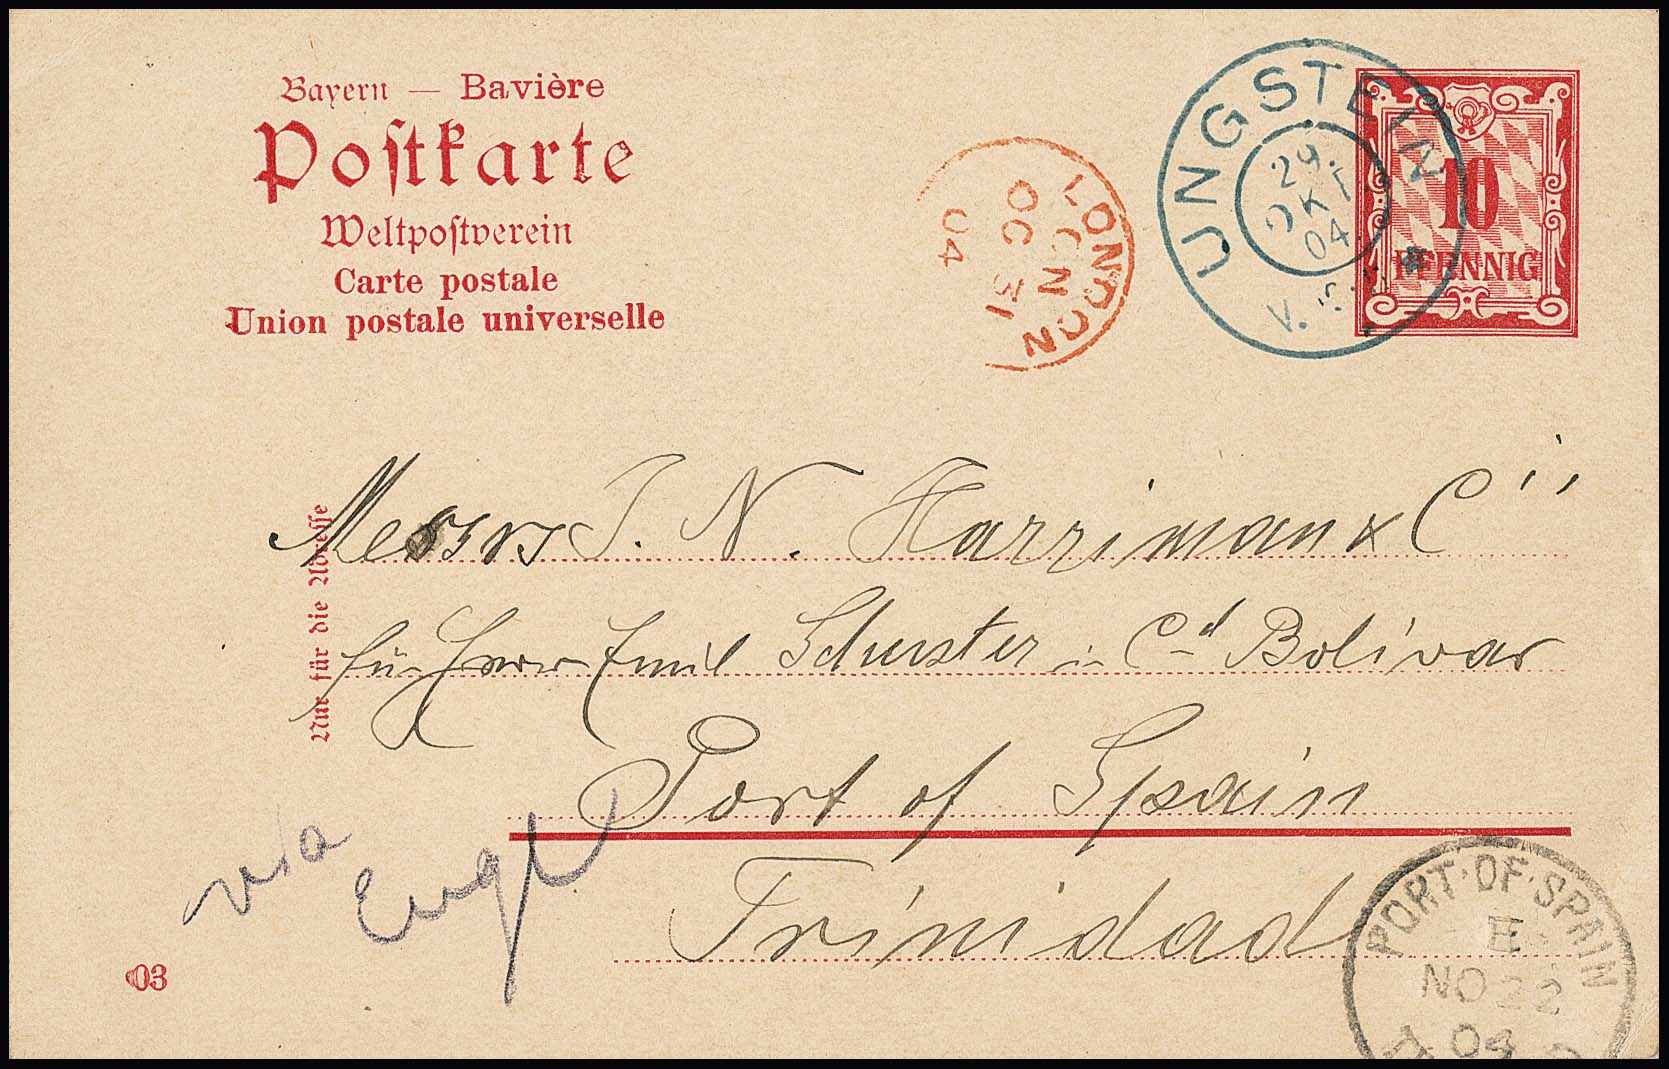 Bayern — Bavière
Postkarte
Weltpostverein
Carte postale
Union postale universelle
LONDON
CN
OC 31
04
UNGSTEIN
29.
OKT
04
V. 5-6
10
PFENNIG
Nur für die Adresse
Messrs J. N. Harriman & Cii
für Herrn Emil Schuster in Cd Bolivar
Port of Spain
Trinidad
via
Engl
03
PORT·OF·SPAIN
E
NO 22
04